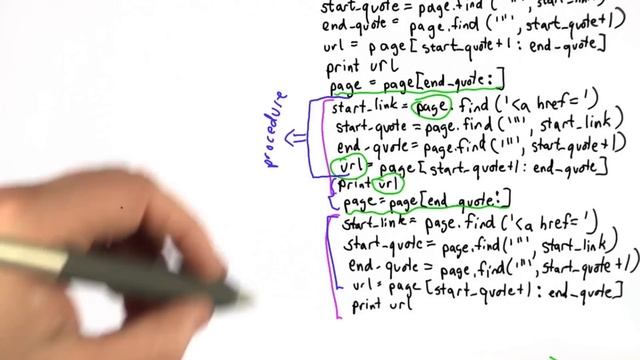 start_quote = page.find('"', start_link)
end_quote = page.find('"', start_quote+1)
url = page[start_quote+1: end_quote]
print url
page = page[end_quote:]
procedure
start_link = page.find('<a href=')
start_quote = page.find('"', start_link)
end_quote = page.find('"', start_quote+1)
url = page[start_quote+1: end_quote]
print url
page = page[end_quote:]
start_link = page.find('<a href=')
start_quote = page.find('"', start_link)
end_quote = page.find('"', start_quote+1)
url = page[start_quote+1: end_quote]
print url